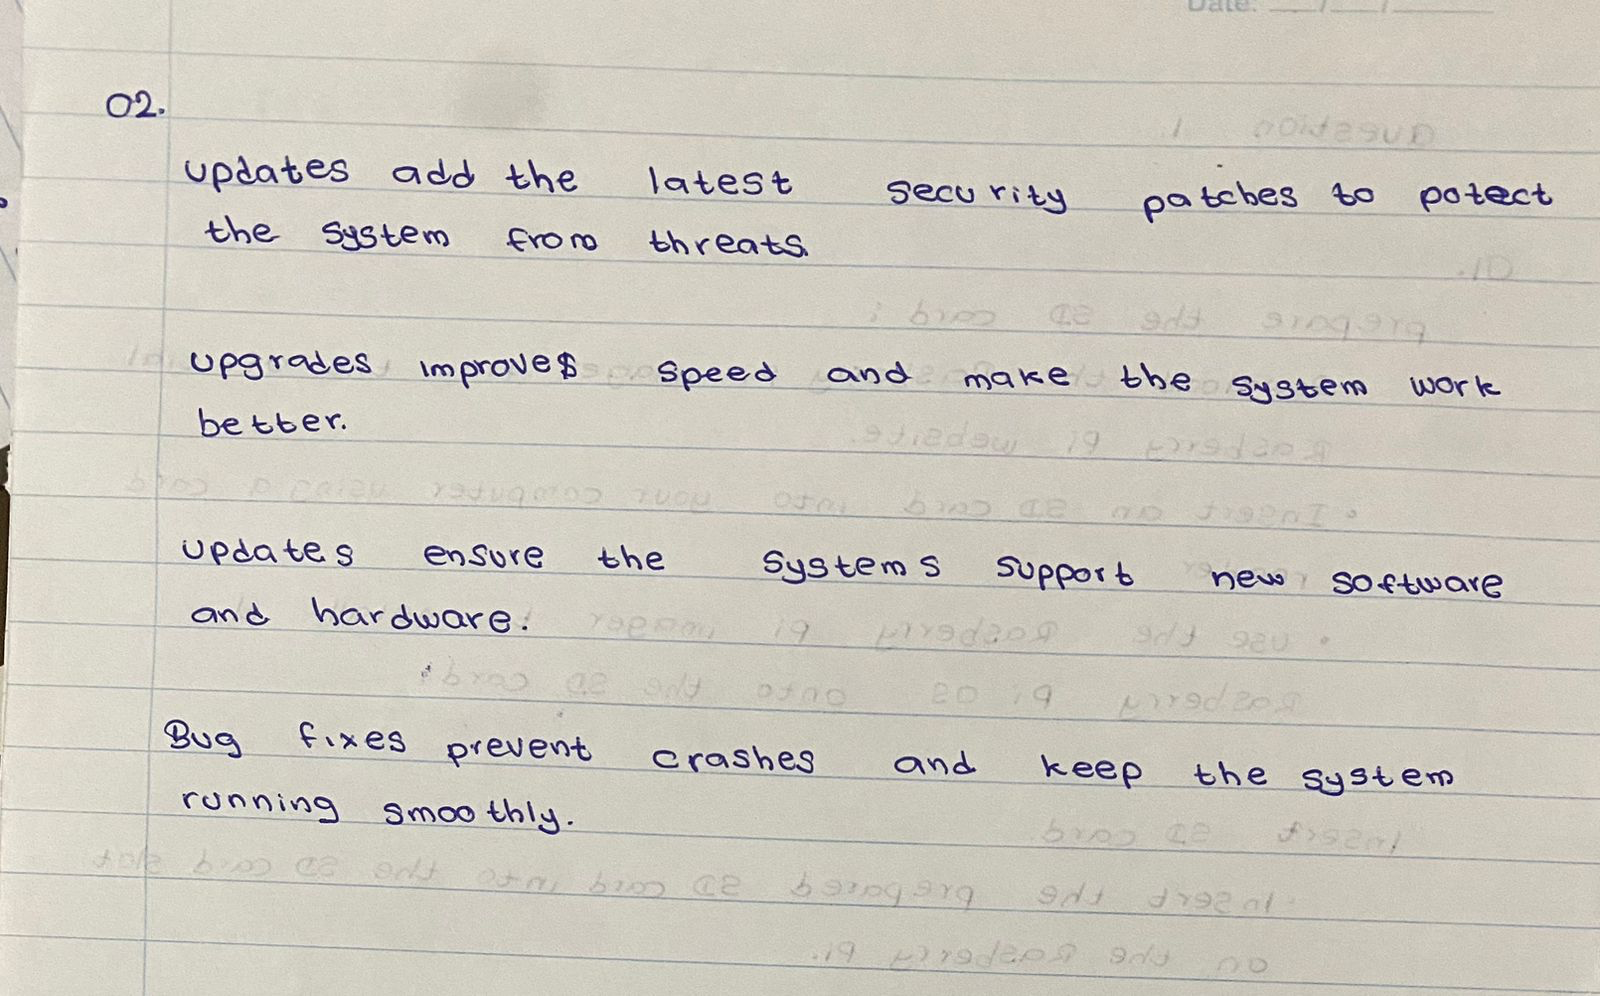 Date: __/__/____
02.
updates add the latest security patches to potect
the system from threats.
upgrades improves speed and make the system work
better.
updates ensure the systems support new software
and hardware.
Bug fixes prevent crashes and keep the system
running smoothly.